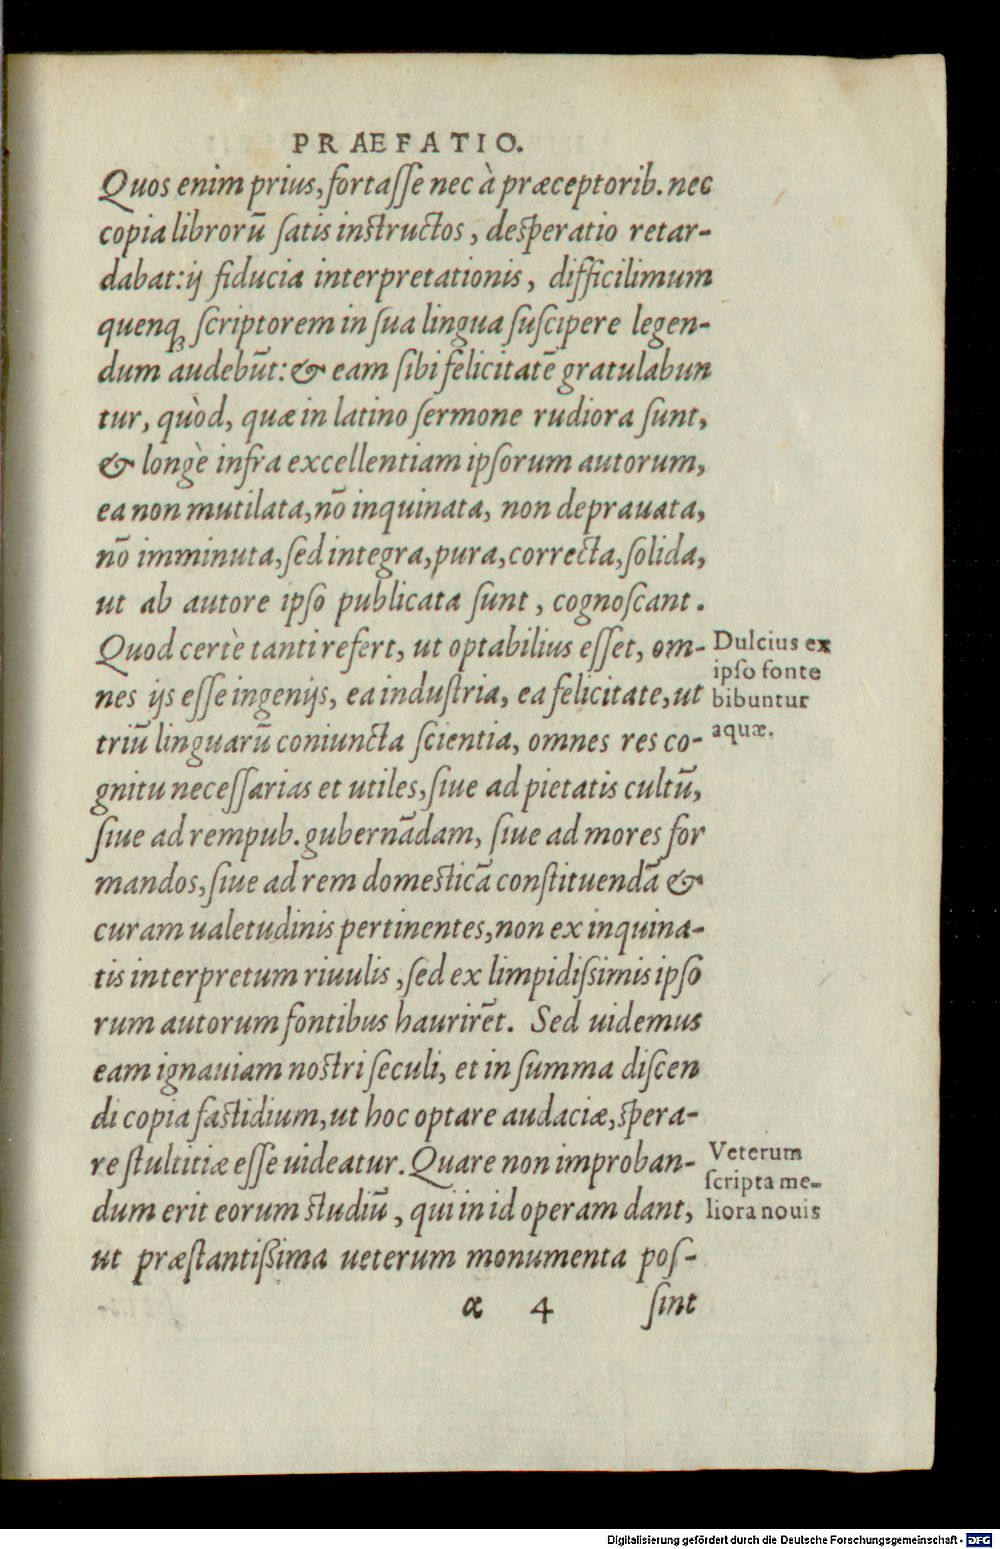 PRAEFATIO.
Quos enim prius, fortaſſe nec à præceptorib. nec
copia librorū ſatis inſtructos, deſperatio retar-
dabat: ij fiducia interpretationis, difficilimum
quenqꝫ ſcriptorem in ſua lingua ſuſcipere legen-
dum audebūt: & eam ſibi felicitatē gratulabun
tur, quòd, quæ in latino ſermone rudiora ſunt,
& longè infra excellentiam ipſorum autorum,
ea non mutilata, nō inquinata, non deprauata,
nō imminuta, ſed integra, pura, correcta, ſolida,
ut ab autore ipſo publicata ſunt, cognoſcant.
Quod certè tanti refert, ut optabilius eſſet, om-
nes ijs eſſe ingenijs, ea induſtria, ea felicitate, ut
triū linguarū coniuncta ſcientia, omnes res co-
gnitu neceſſarias et utiles, ſiue ad pietatis cultū,
ſiue ad rempub. gubernādam, ſiue ad mores for
mandos, ſiue ad rem domeſticā conſtituendā &
curam ualetudinis pertinentes, non ex inquina-
tis interpretum riuulis, ſed ex limpidiſsimis ipſo
rum autorum fontibus haurirēt. Sed uidemus
eam ignauiam noſtri ſeculi, et in ſumma diſcen
di copia faſtidium, ut hoc optare audaciæ, ſpera-
re ſtultitiæ eſſe uideatur. Quare non improban-
dum erit eorum ſtudiū, qui in id operam dant,
ut præſtantißima ueterum monumenta poſ-
α 4 ſint
Dulcius ex
ipſo fonte
bibuntur
aquæ.
Veterum
ſcripta me-
liora nouis
Digitalisierung gefördert durch die Deutsche Forschungsgemeinschaft - DFG